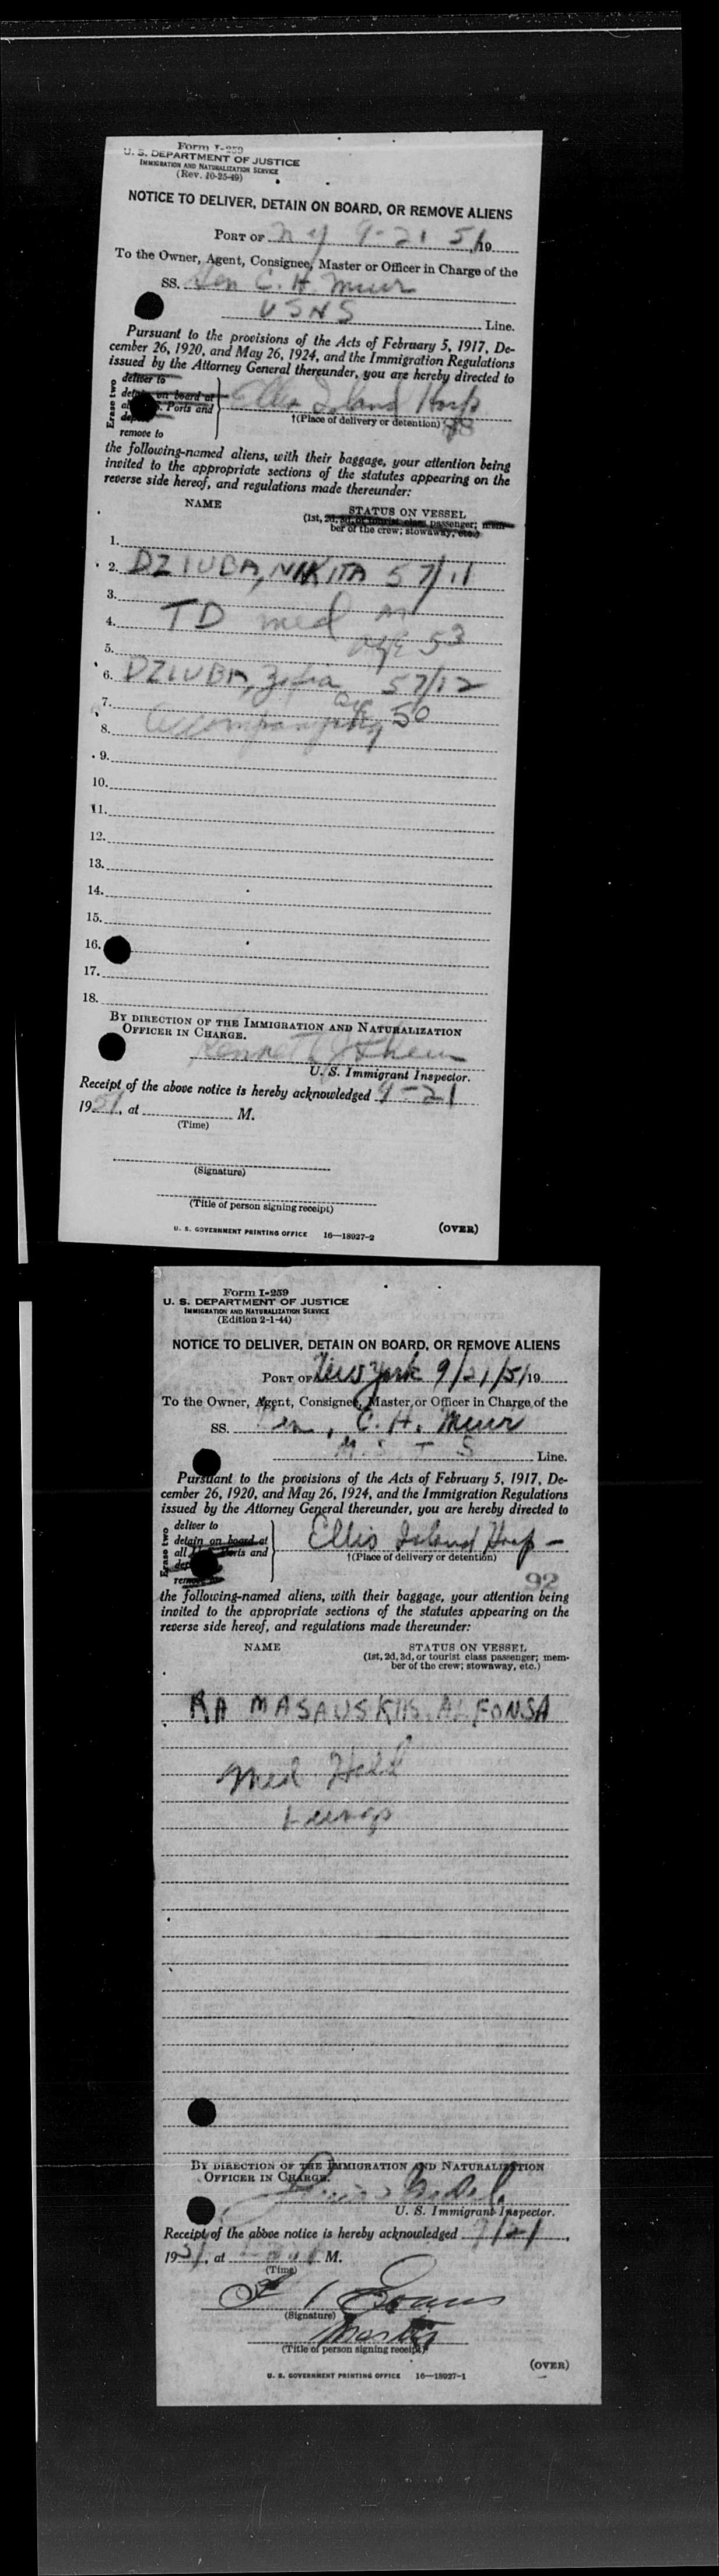 Form I-259
U. S. DEPARTMENT OF JUSTICE
IMMIGRATION AND NATURALIZATION SERVICE
(Rev. 10-25-49)
NOTICE TO DELIVER, DETAIN ON BOARD, OR REMOVE ALIENS
PORT OF NY 9-21 51, 19
To the Owner, Agent, Consignee, Master or Officer in Charge of the
SS. Gen C. H. Muir
USNS Line.
Pursuant to the provisions of the Acts of February 5, 1917, De-
cember 26, 1920, and May 26, 1924, and the Immigration Regulations
issued by the Attorney General thereunder, you are hereby directed to
Erase two
deliver to
detain on board at
Ports and
remove to
Ellis Island Hosp
†(Place of delivery or detention)
the following-named aliens, with their baggage, your attention being
invited to the appropriate sections of the statutes appearing on the
reverse side hereof, and regulations made thereunder:
NAME STATUS ON VESSEL
(1st, 2d, 3d, or tourist class passenger; mem-
ber of the crew; stowaway, etc.)
1.
2. DZIUBA, NIKITA 57/11
3.
4. TD med
5. age 53
6. DZIUBA, Zofia 57/12
7. age 50
8. accompanying
9.
10.
11.
12.
13.
14.
15.
16.
17.
18.
BY DIRECTION OF THE IMMIGRATION AND NATURALIZATION
OFFICER IN CHARGE.
U. S. Immigrant Inspector.
Receipt of the above notice is hereby acknowledged 9-21
1951, at M.
(Time)
(Signature)
(Title of person signing receipt)
U. S. GOVERNMENT PRINTING OFFICE 16—18927-2 (OVER)
Form I-259
U. S. DEPARTMENT OF JUSTICE
IMMIGRATION AND NATURALIZATION SERVICE
(Edition 2-1-44)
NOTICE TO DELIVER, DETAIN ON BOARD, OR REMOVE ALIENS
PORT OF New York 9/21/51 19
To the Owner, Agent, Consignee, Master or Officer in Charge of the
SS. Gen, C. H. Muir
M. S T S Line.
Pursuant to the provisions of the Acts of February 5, 1917, De-
cember 26, 1920, and May 26, 1924, and the Immigration Regulations
issued by the Attorney General thereunder, you are hereby directed to
Erase two
deliver to
detain on board at
all Ports and
Ellis Island Hosp —
†(Place of delivery or detention)
92
the following-named aliens, with their baggage, your attention being
invited to the appropriate sections of the statutes appearing on the
reverse side hereof, and regulations made thereunder:
NAME STATUS ON VESSEL
(1st, 2d, 3d, or tourist class passenger; mem-
ber of the crew; stowaway, etc.)
RAMASAUSKAS ALFONSA
Med Held
Lungs
BY DIRECTION OF THE IMMIGRATION AND NATURALIZATION
OFFICER IN CHARGE.
U. S. Immigrant Inspector.
Receipt of the above notice is hereby acknowledged 9/21,
1951, at M.
(Time)
Evans
(Signature)
Master
(Title of person signing receipt)
(OVER)
U. S. GOVERNMENT PRINTING OFFICE 16—18927-1